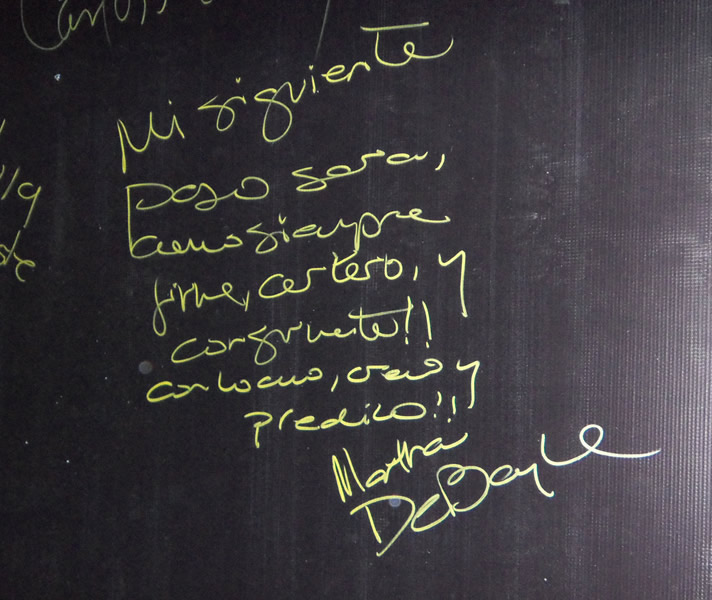 Carlos
Mi siguiente
paso sera,
como siempre
firme, certero, y
congruente!!
con lo que, creo y
predico!!
Martha
DeBayle